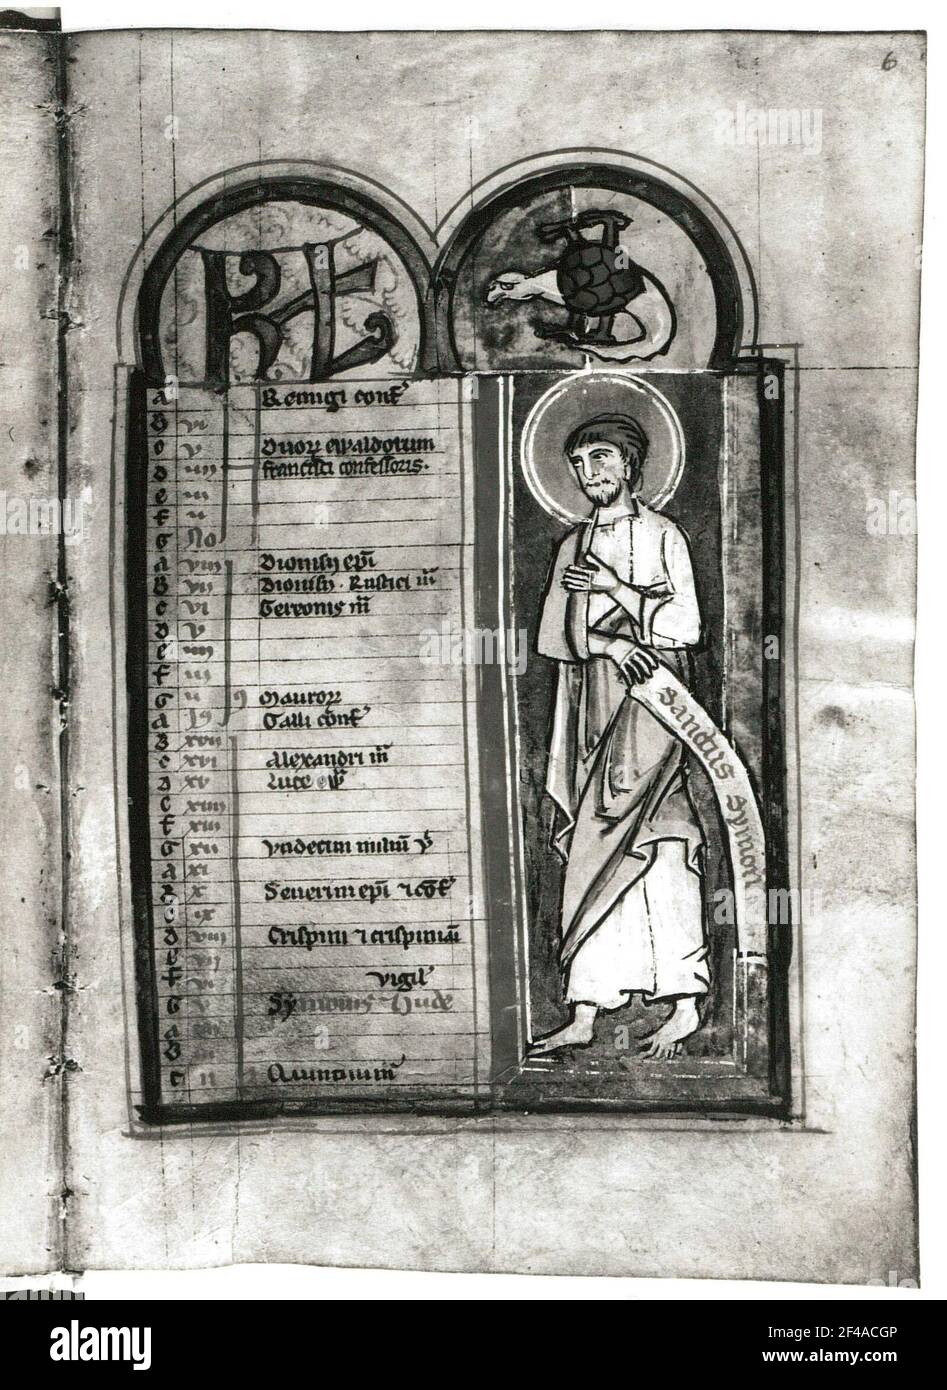 6
KL
a Remigi conf
b vi
c v Duorꝝ ewaldorum
d iiii francisci confessoris.
e iii
f ii
g No
a viii Dionisii epi
b vii Dionisii . Rustici m
c vi Gereonis m
d v
e iiii
f iii
g ii Maurorꝝ
a Galli conf
b xvii
c xvi Alexandri m
d xv Luce
e xiiii
f xiii
g xii Undecim milium v
a xi
b x Severini epi
c ix
d viii Crispini crispiniani
e vii
f vi vigil
g v Symonis Iude
a
b
c ii
Sanctus Symon
alamy
alamy
Image ID: 2F4ACGP
www.alamy.com